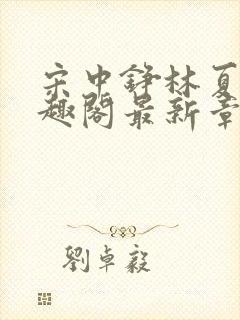 宋中铮林夏
趣阁最新章
劉卓毅